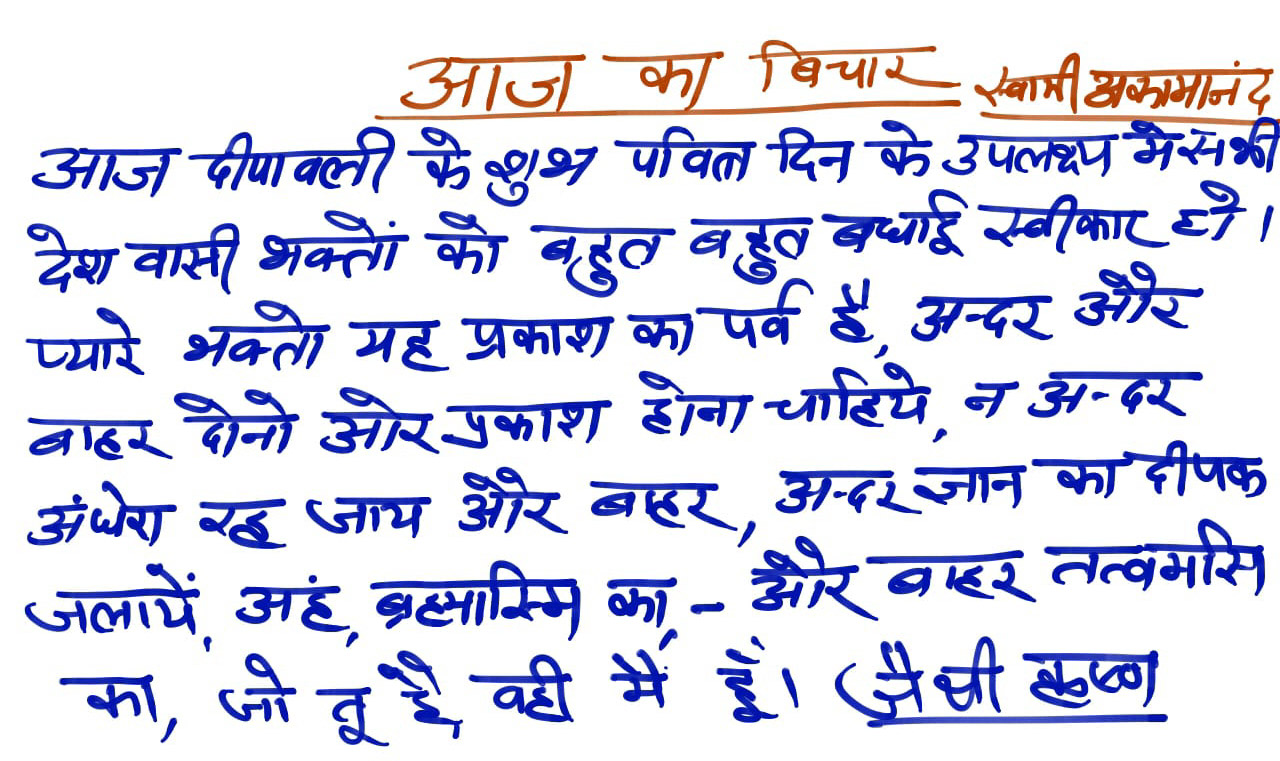 आज का बिचार स्वामी अकामानंद
आज दीपावली के शुभ पवित्र दिन के उपलक्ष्य मे सभी
देश वासी भक्तों को बहुत बहुत बधाई स्वीकार हो।
प्यारे भक्तो यह प्रकाश का पर्व है, अन्दर और
बाहर दोनो ओर प्रकाश होना चाहिये, न अन्दर
अंधेरा रह जाय और बाहर, अन्दर ज्ञान का दीपक
जलायें, अहं, ब्रह्मास्मि का, - और बाहर तत्वमसि
का, जो तू है, वही मैं हूँ। जै श्री कृष्ण